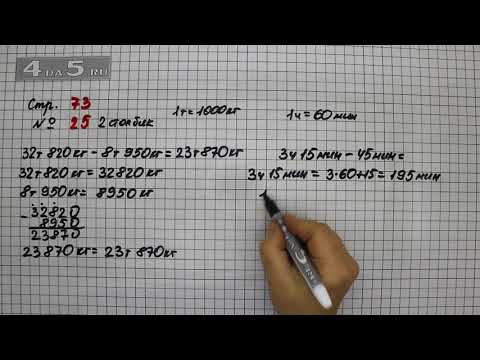 4 DA 5.RU
Стр. 73
№ 25 2 столбик
1т=1000кг
32т 820 кг – 8т 950кг= 23т870кг
32т 820кг= 32820 кг
8т 950кг= 8950 кг
– 32820
8950
23870
23 870кг= 23т 870кг
1ч=60мин
3ч 15мин – 45мин=
3ч 15мин= 3·60+15= 195мин